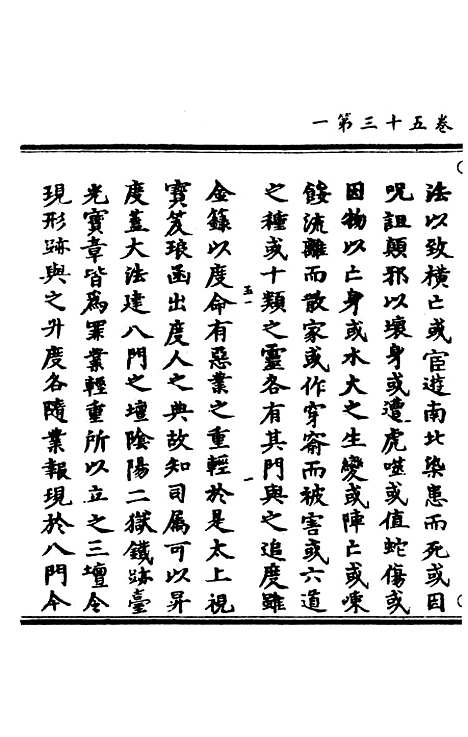 卷五十三第一
法以致橫亡或宦遊南北染患而死或因
呪詛顛邪以壞身或遭虎噬或值蛇傷或
因物以亡身或水火之生變或陣亡或凍
餒流離而散家或作穿窬而被害或六道
之種或十類之靈各有其門與之追度雖
五一
一
金籙以度命有惡業之重輕於是太上視
寶笈琅函出度人之典故知司屬可以昇
度蓋大法建八門之壇陰陽二獄鐵跡臺
光寶章皆為罪業輕重所以立之三壇令
現形跡與之升度各隨業報現於八門今